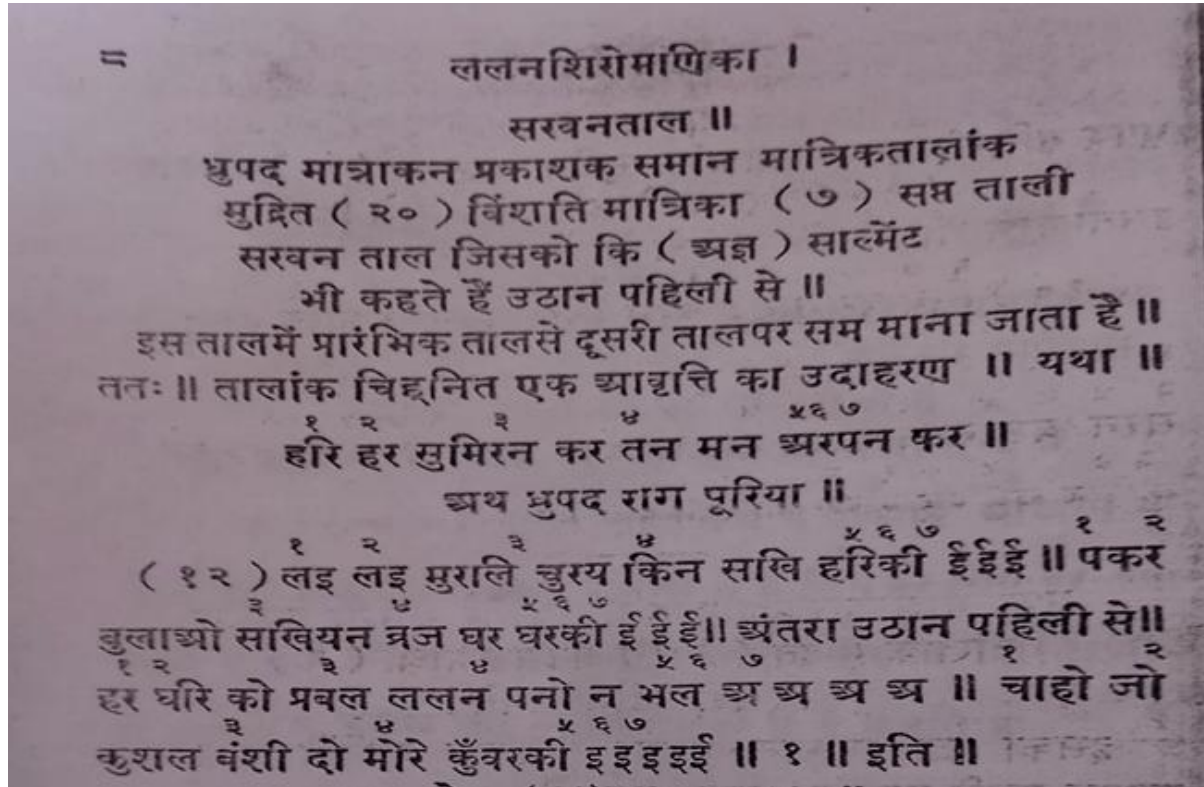 ८ ललनशिरोमणिका ।
सरवनताल ॥
ध्रुपद मात्राकन प्रकाशक समान मात्रिकतालांक
मुद्रित ( २० ) विंशति मात्रिका ( ७ ) सप्त ताली
सरवन ताल जिसको कि ( अज्ञ ) साल्मेंट
भी कहते हैं उठान पहिली से ॥
इस तालमें प्रारंभिक तालसे दूसरी तालपर सम माना जाता है ॥
ततः ॥ तालांक चिह्नित एक आवृत्ति का उदाहरण ॥ यथा ॥
१ २ ३ ४ ५ ६ ७
हरि हर सुमिरन कर तन मन अरपन कर ॥
अथ ध्रुपद राग पूरिया ॥
१ २ ३ ४ ५ ६ ७ १ २
( १२ ) लइ लइ मुरलि चुरय किन सखि हरिकी ईईई ॥ पकर
३ ४ ५ ६ ७
बुलाओ सखियन व्रज घर घरकी ई ई ई॥ अंतरा उठान पहिली से॥
१ २ ३ ४ ५ ६ ७ १ २
हर घरि को प्रबल ललन पनो न भल अ अ अ अ ॥ चाहो जो
३ ४ ५ ६ ७
कुशल बंशी दो मोरे कुँवरकी इइइइई ॥ १ ॥ इति ॥